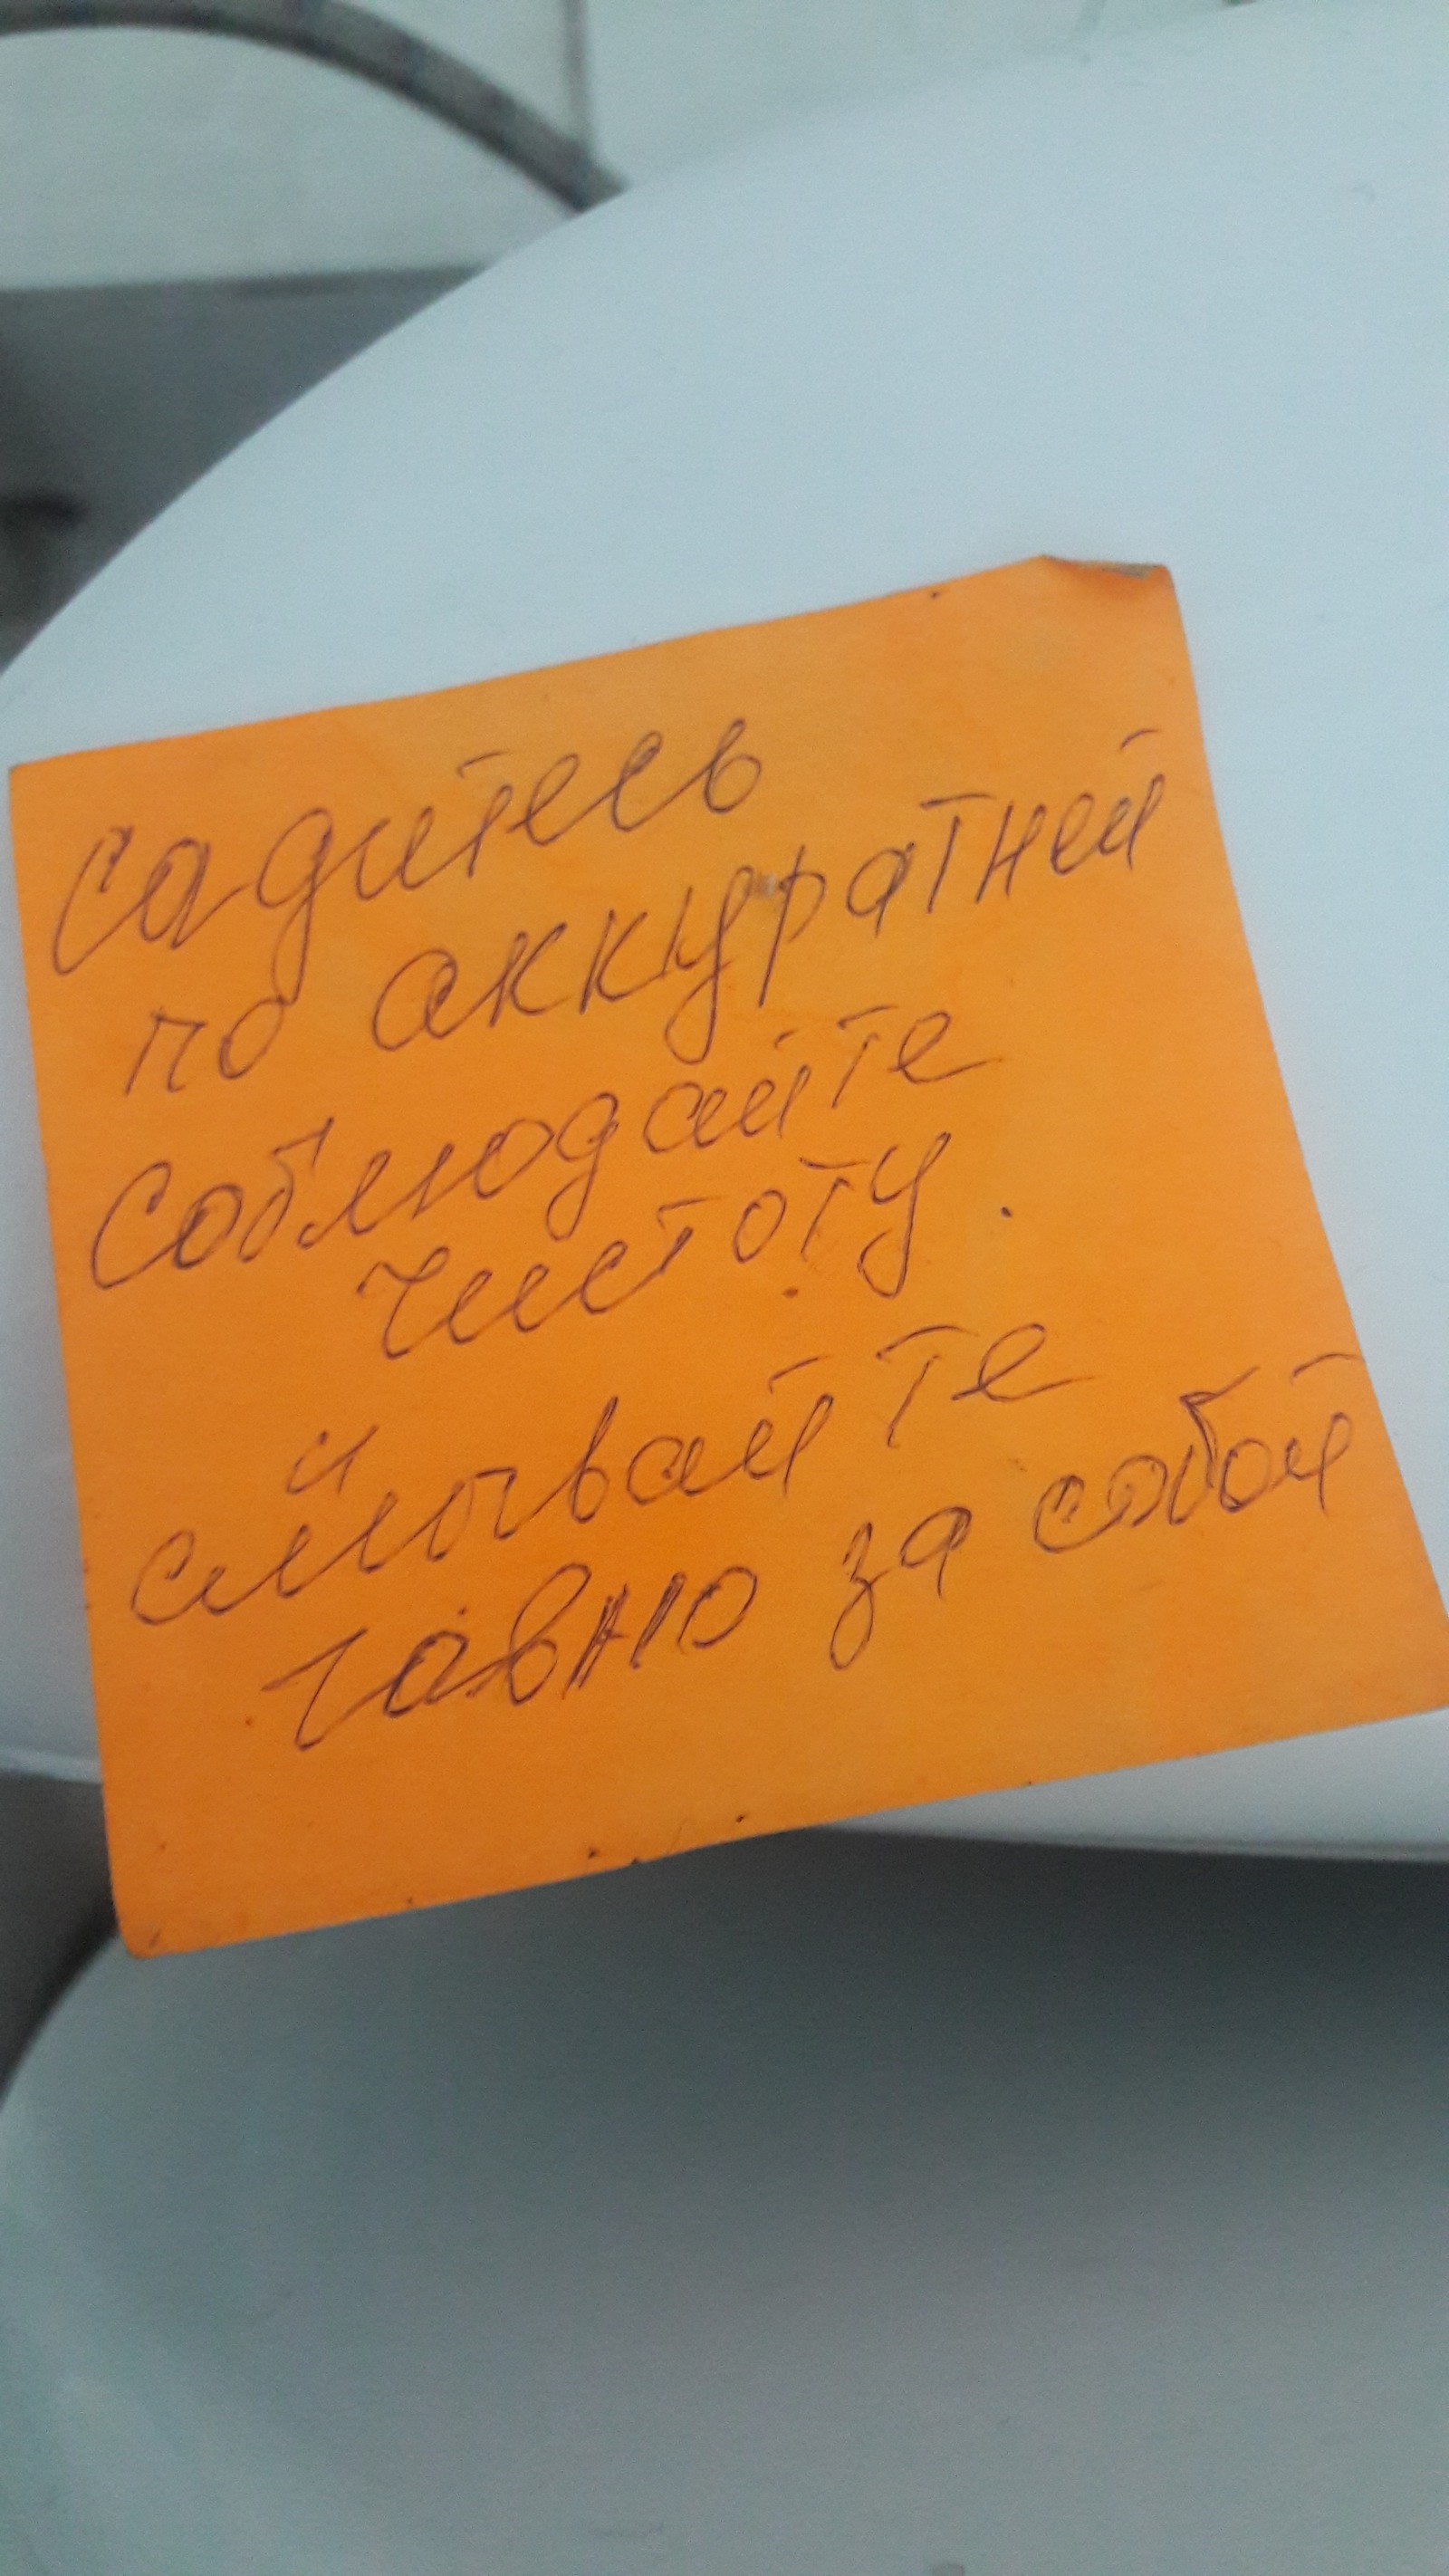 Садитесь
по аккуратней
Соблюдайте
чистоту.
и
смывайте
гавно за собой